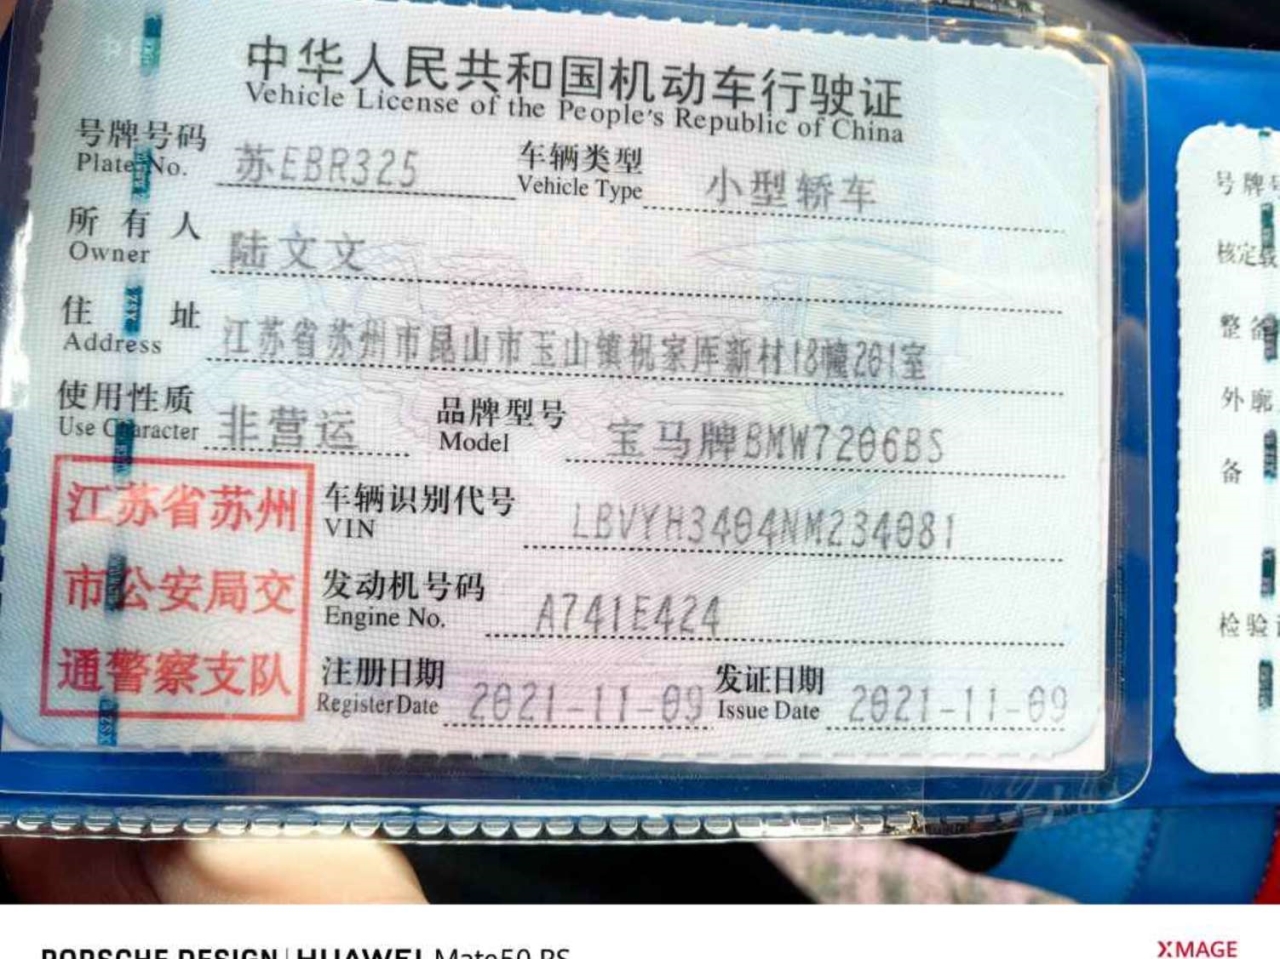 中华人民共和国机动车行驶证
Vehicle License of the People's Republic of China
号牌号码 苏EBR325 车辆类型 小型轿车
Plate No. Vehicle Type
所有人 陆文文
Owner
住址 江苏省苏州市昆山市玉山镇祝家厍新村18幢201室
Address
使用性质 非营运 品牌型号 宝马牌BMW7206BS
Use Character Model
车辆识别代号 LBVYH3404NM234081
VIN
发动机号码 A741E424
Engine No.
注册日期 2021-11-09 发证日期 2021-11-09
Register Date Issue Date
江苏省苏州
市公安局交
通警察支队
号牌
核定载
整备
外廓
备
检验
PORSCHE DESIGN | HUAWEI Mate50 RS
XMAGE